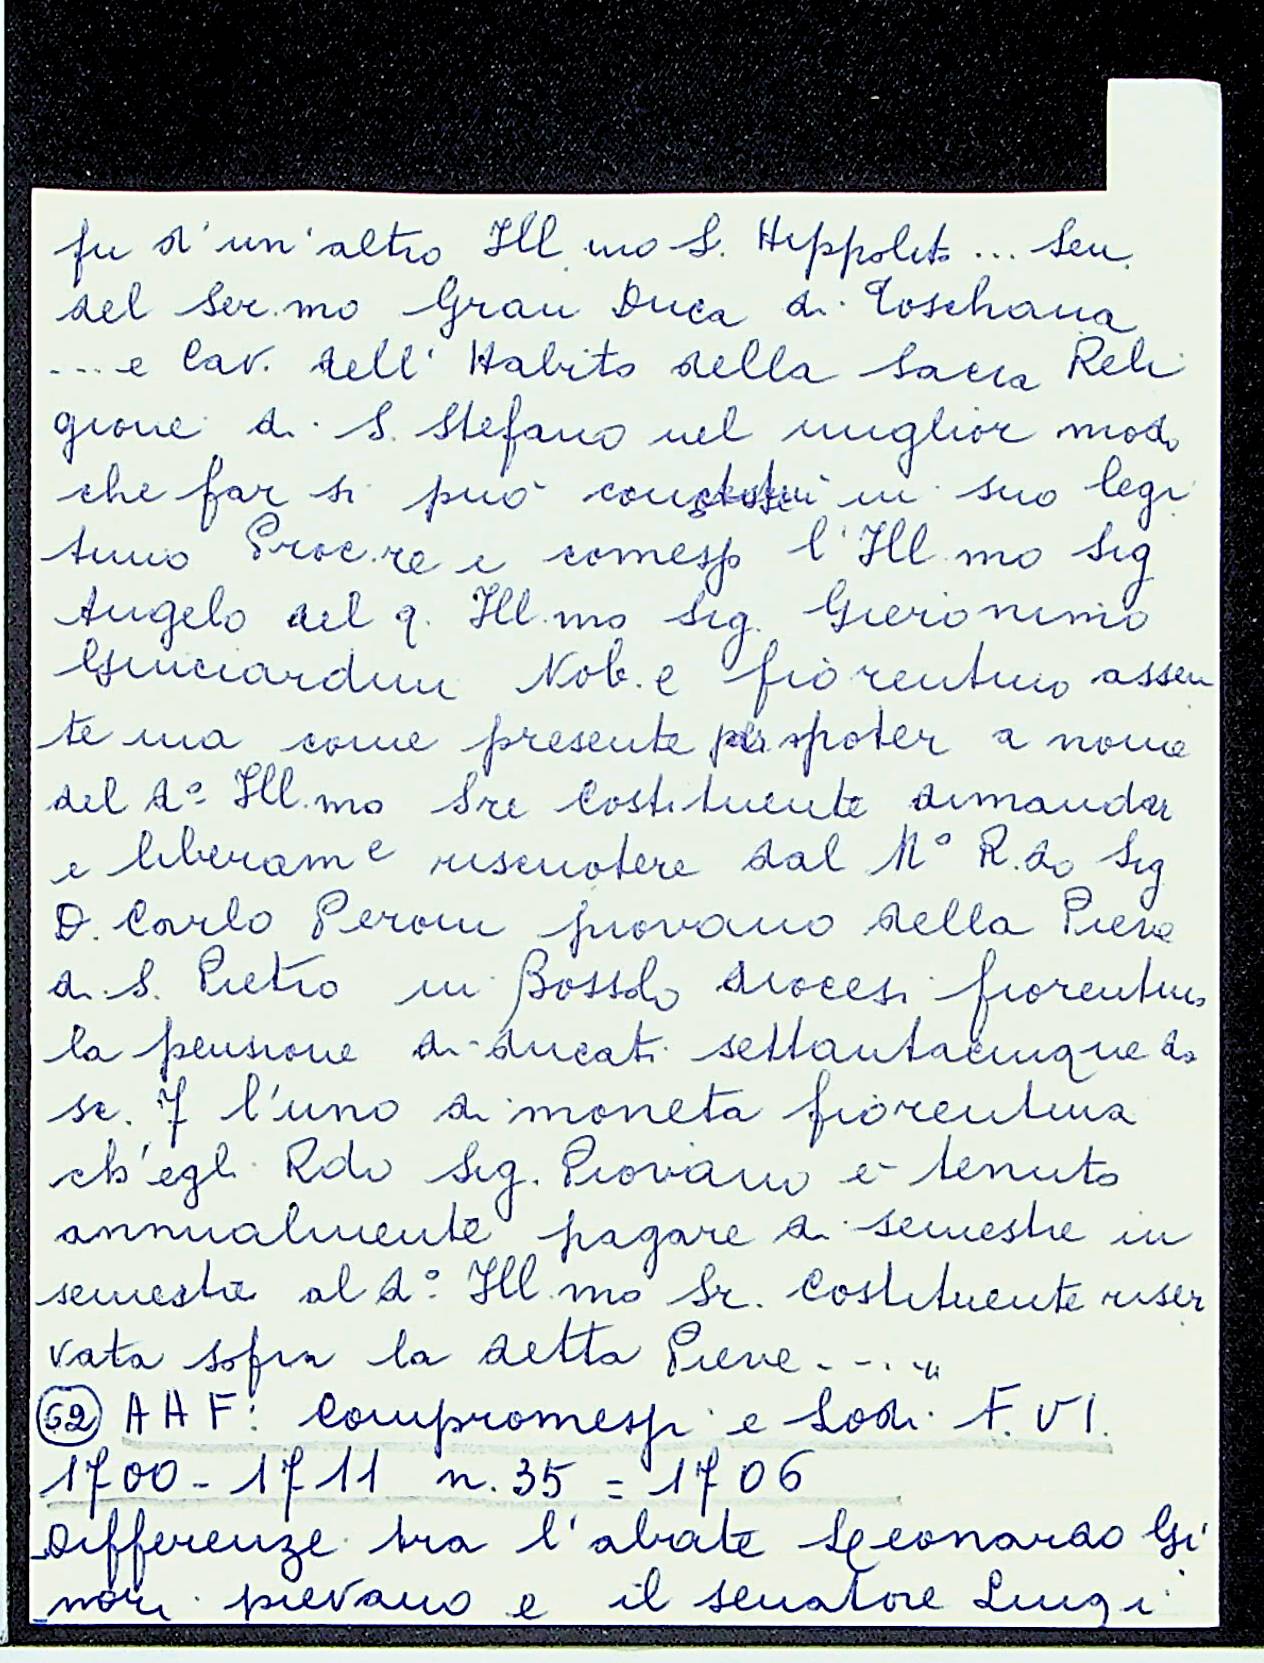 fu d'un'altro Ill.mo S. Hippolito ... Sen.
del Ser.mo Gran Duca di Toschana
.... e Cav. dell' Habito della Sacra Reli
gione di S. Stefano nel miglior modo
che far si può in suo legi
timo Proc.re e comesso l'Ill.mo Sig
Angelo del q. Ill.mo Sig. Gieronimo
Guiciardini Nob.e fiorentino assen
te ma come presente per poter a nome
del d° Ill.mo Sre Costituente dimandar
e liberam e riscuotere dal M° R.do Sig
D. Carlo Peroni piovano della Pieve
di S. Pietro in Bossolo diocesi fiorentina
la pensione di ducati settantacinque da
sc. 7 l'uno di moneta fiorentina
ch'egli Rdo Sig. Piovano è tenuto
annualmente pagare di semestre in
semestre al d° Ill.mo Sr. Costituente riser
vata sopra la detta Pieve ....."
(52) AAF: Compromessi e Lodi F. VI.
1700 - 1711 n. 35 = 1706
Differenze tra l'abate Leonardo Gi
nori pievano e il senatore Luigi